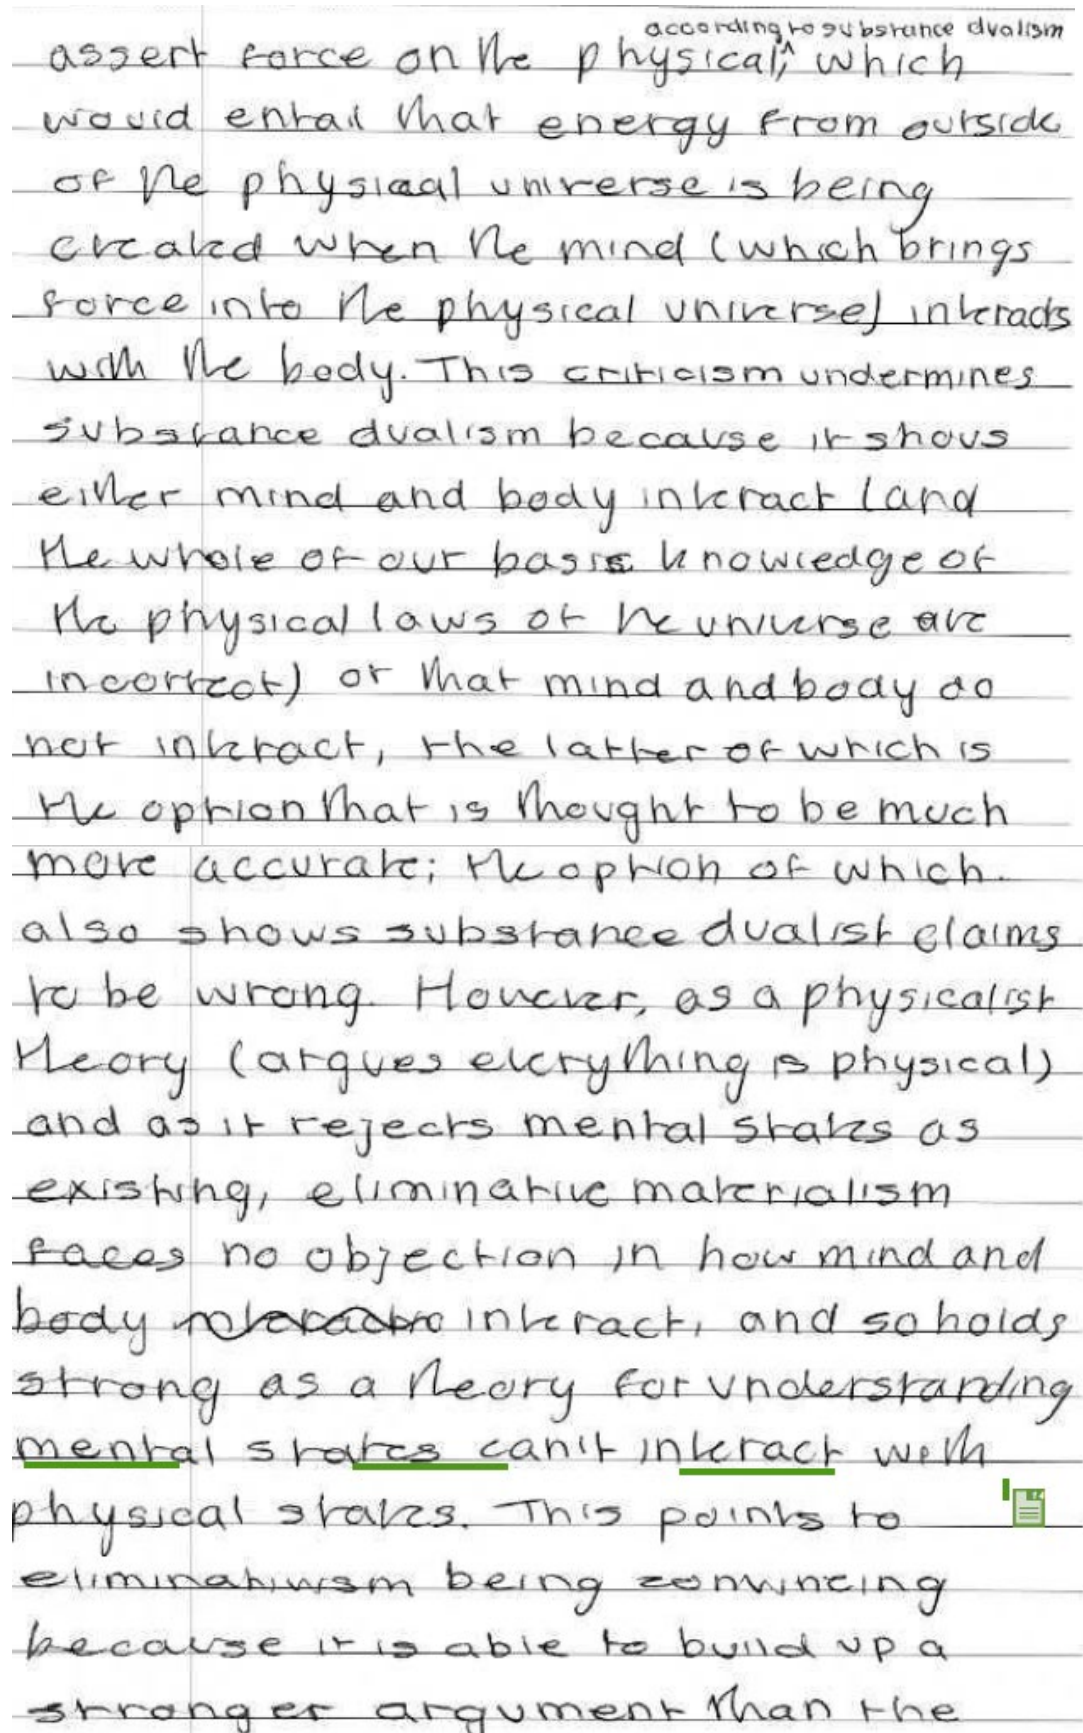 according to substance dualism
assert force on the physical, ^ which
would entail that energy from outside
of the physical universe is being
created when the mind (which brings
force into the physical universe) interacts
with the body. This criticism undermines
substance dualism because it shows
either mind and body interact (and
the whole of our basis knowledge of
the physical laws of the universe are
incorrect) or that mind and body do
not interact, the latter of which is
the option that is thought to be much
more accurate; the option of which
also shows substance dualist claims
to be wrong. However, as a physicalist
theory (argues everything is physical)
and as it rejects mental states as
existing, eliminative materialism
faces no objection in how mind and
body interact, and so holds
strong as a theory for understanding
mental states can't interact with
physical states. This points to
eliminativism being convincing
because it is able to build up a
stronger argument than the